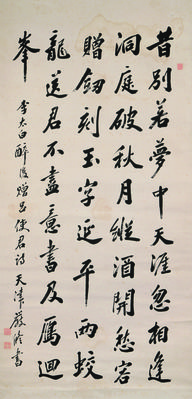 昔別若夢中天涯忽相逢
洞庭破秋月縱酒開愁容
贈劔刻玉字延平兩蛟
龍送君不盡意書及鴈迴
峯
李太白醉後贈呂使君詩 天津嚴修書